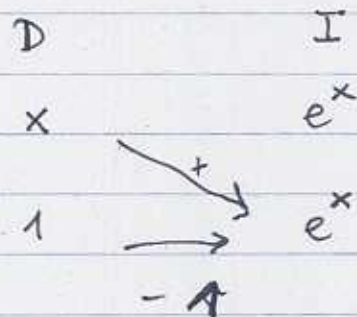 D I
x e^x
+
1 e^x
-